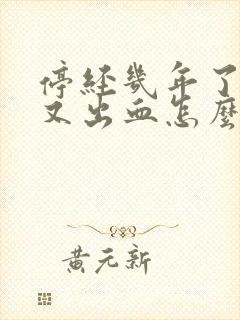 停经几年了
又出血怎麼
黄元新